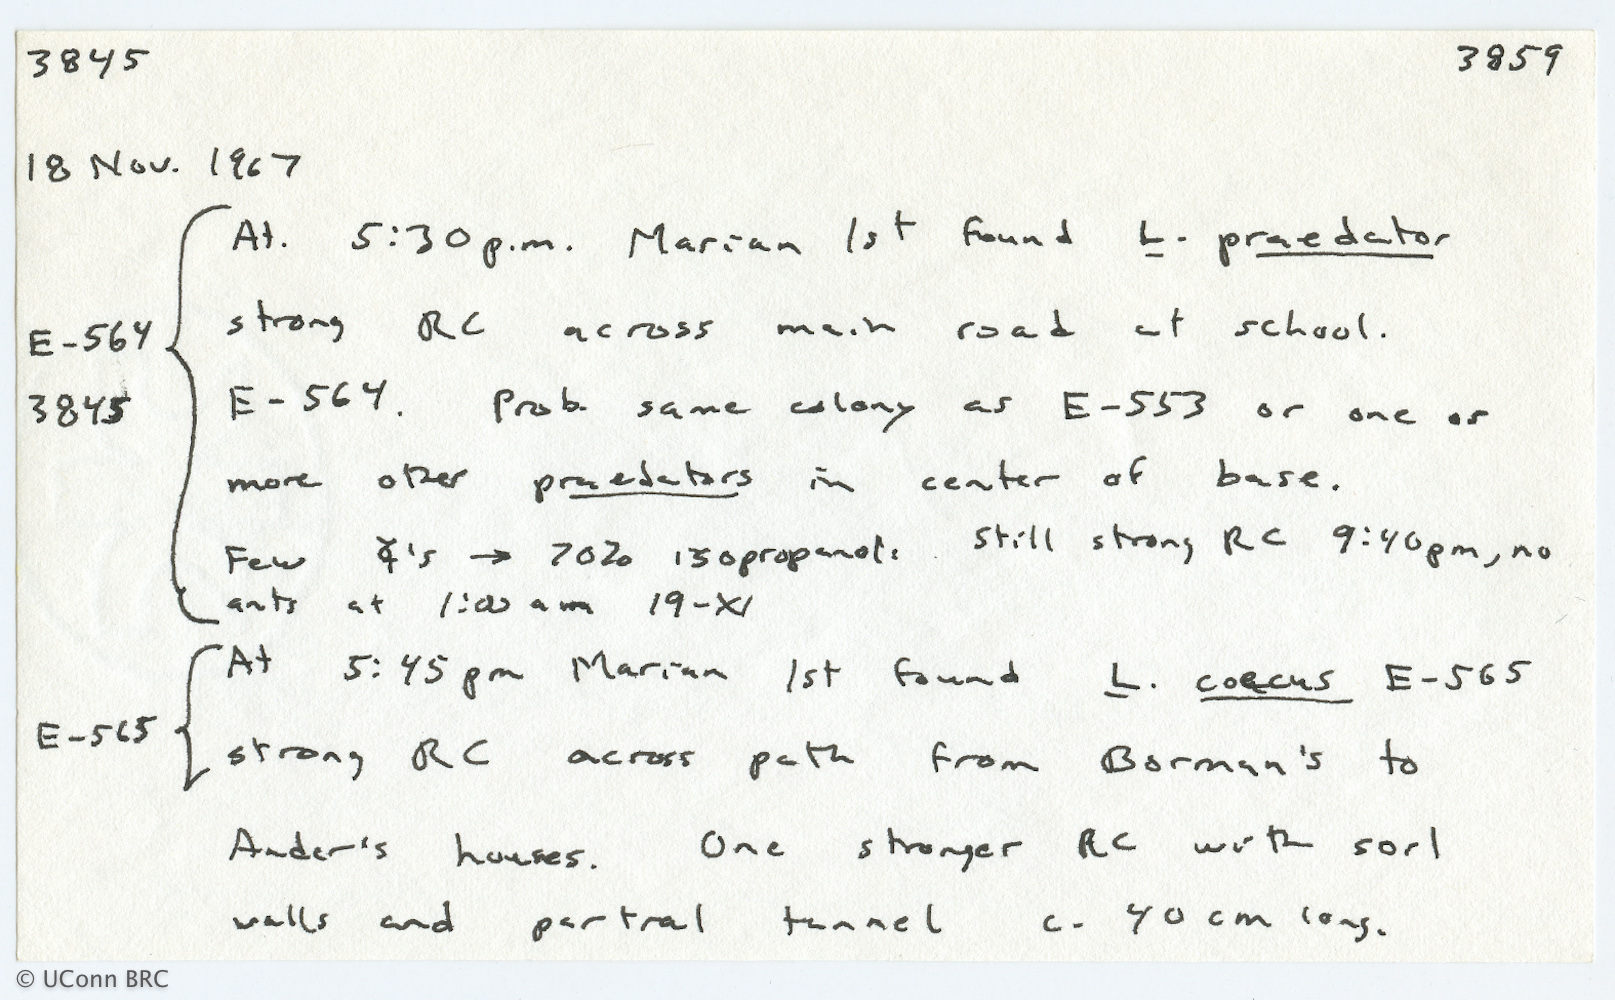 3845 3859
18 Nov. 1967
At. 5:30 p.m. Marian 1st found L. praedator
strong RC across main road at school.
E-564
3845
E-564. Prob. same colony as E-553 or one or
more other praedators in center of base.
Few ☿'s → 70% isopropanol. Still strong RC 9:40pm, no
ants at 1:00 am 19-XI
At 5:45 pm Marian 1st found L. coecus E-565
E-565
strong RC across path from Borman's to
Ander's houses. One stronger RC with soil
walls and partial tunnel c. 40 cm long.
© UConn BRC